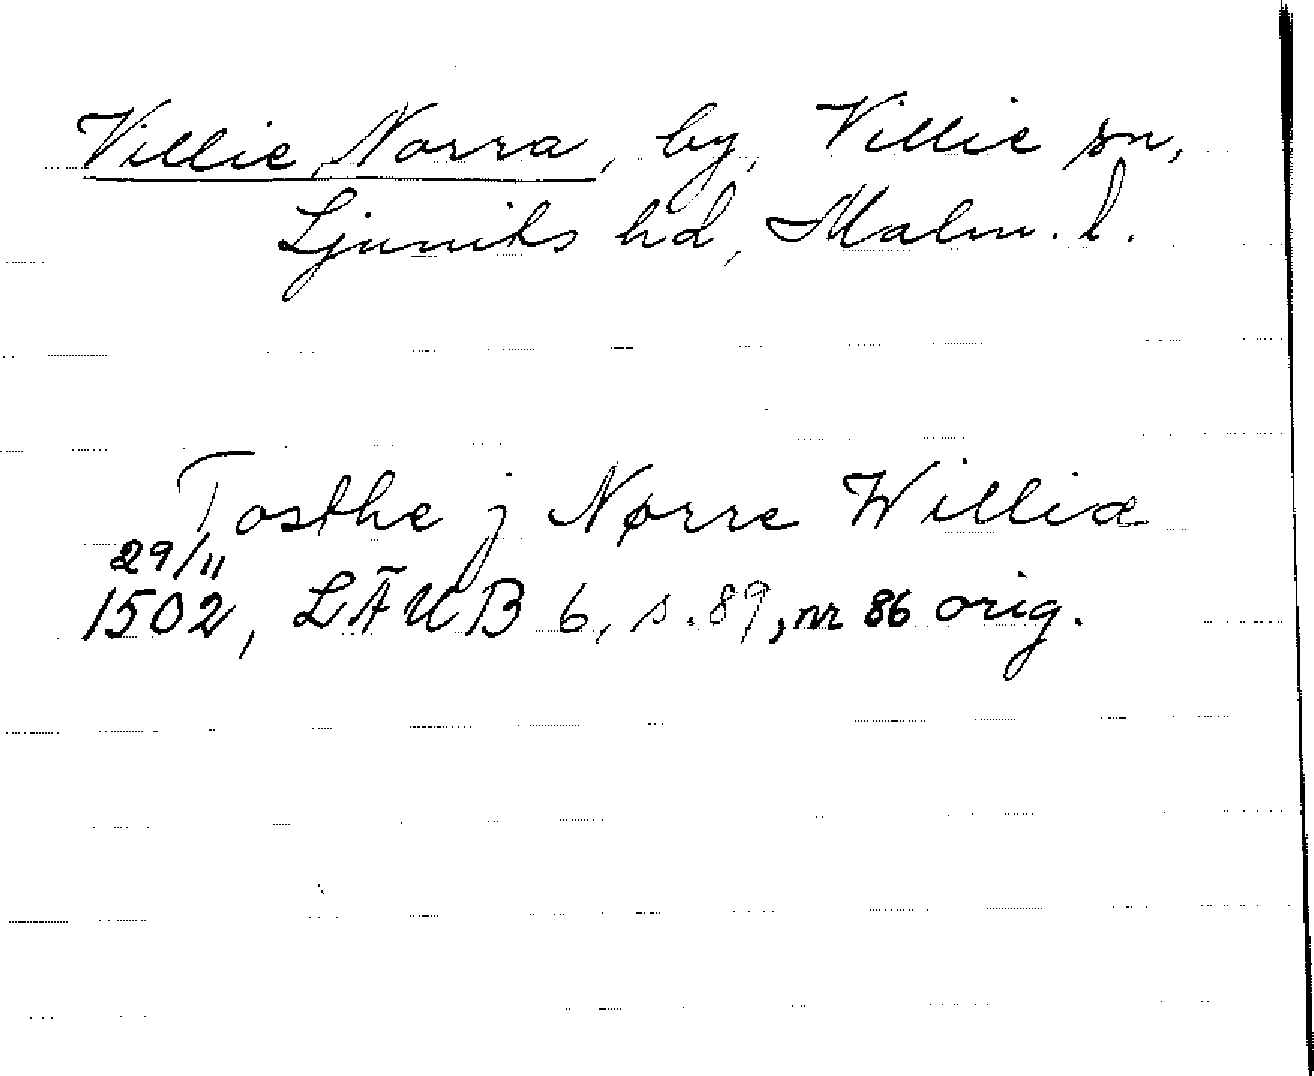 Villie, Norra, by, Villie sn,
Ljunits hd, Malm. l.
Tosthe j Nørre Williæ
29/11
1502, LÄUB 6, s. 89, nr 86 orig.